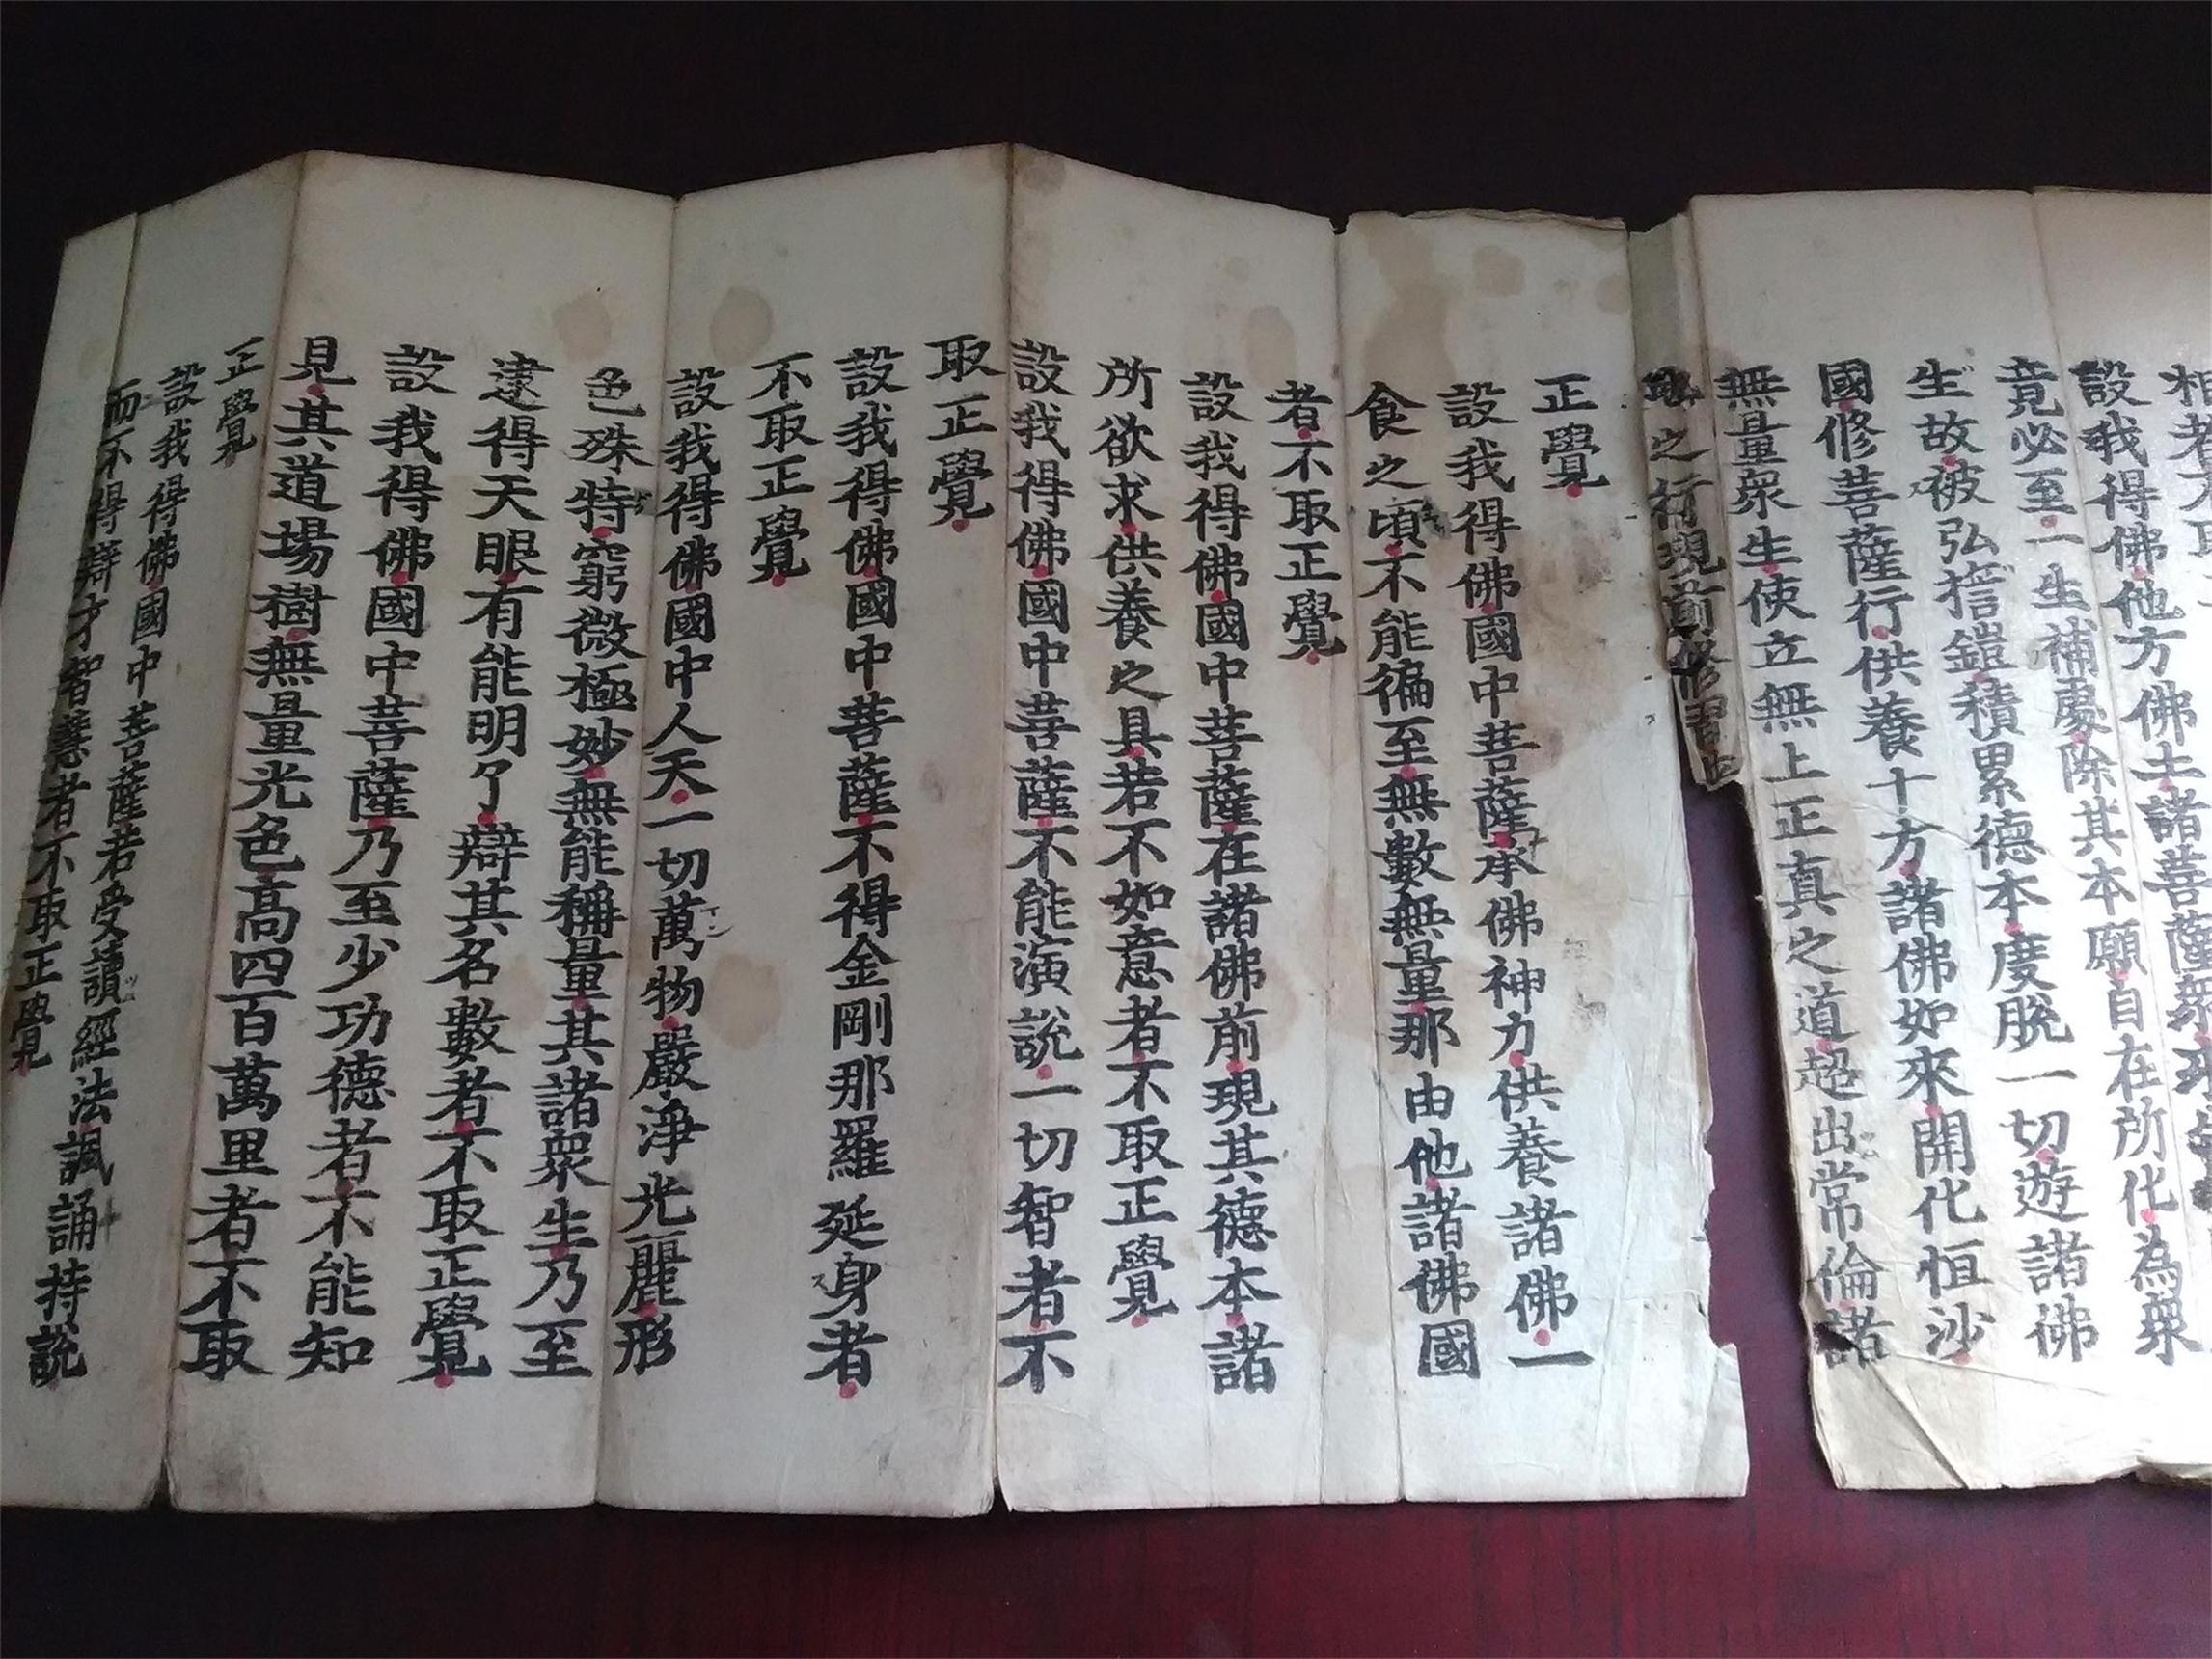 相者不取
設我得佛他方佛土諸菩薩衆來
竟必至一生補處除其本願自在所化為衆
生故被弘誓鎧積累德本度脫一切遊諸佛
國修菩薩行供養十方諸佛如來開化恒沙
無量衆生使立無上正真之道超出常倫諸
地之行現前修習
正覺
設我得佛國中菩薩承佛神力供養諸佛一
食之頃不能徧至無數無量那由他諸佛國
者不取正覺
設我得佛國中菩薩在諸佛前現其德本諸
所欲求供養之具若不如意者不取正覺
設我得佛國中菩薩不能演說一切智者不
取正覺
設我得佛國中菩薩不得金剛那羅延身者
不取正覺
設我得佛國中人天一切萬物嚴淨光麗形
色殊特窮微極妙無能稱量其諸衆生乃至
逮得天眼有能明了辯其名數者不取正覺
設我得佛國中菩薩乃至少功德者不能知
見其道場樹無量光色高四百萬里者不取
正覺
設我得佛國中菩薩若受讀經法諷誦持說
而不得辯才智慧者不取正覺